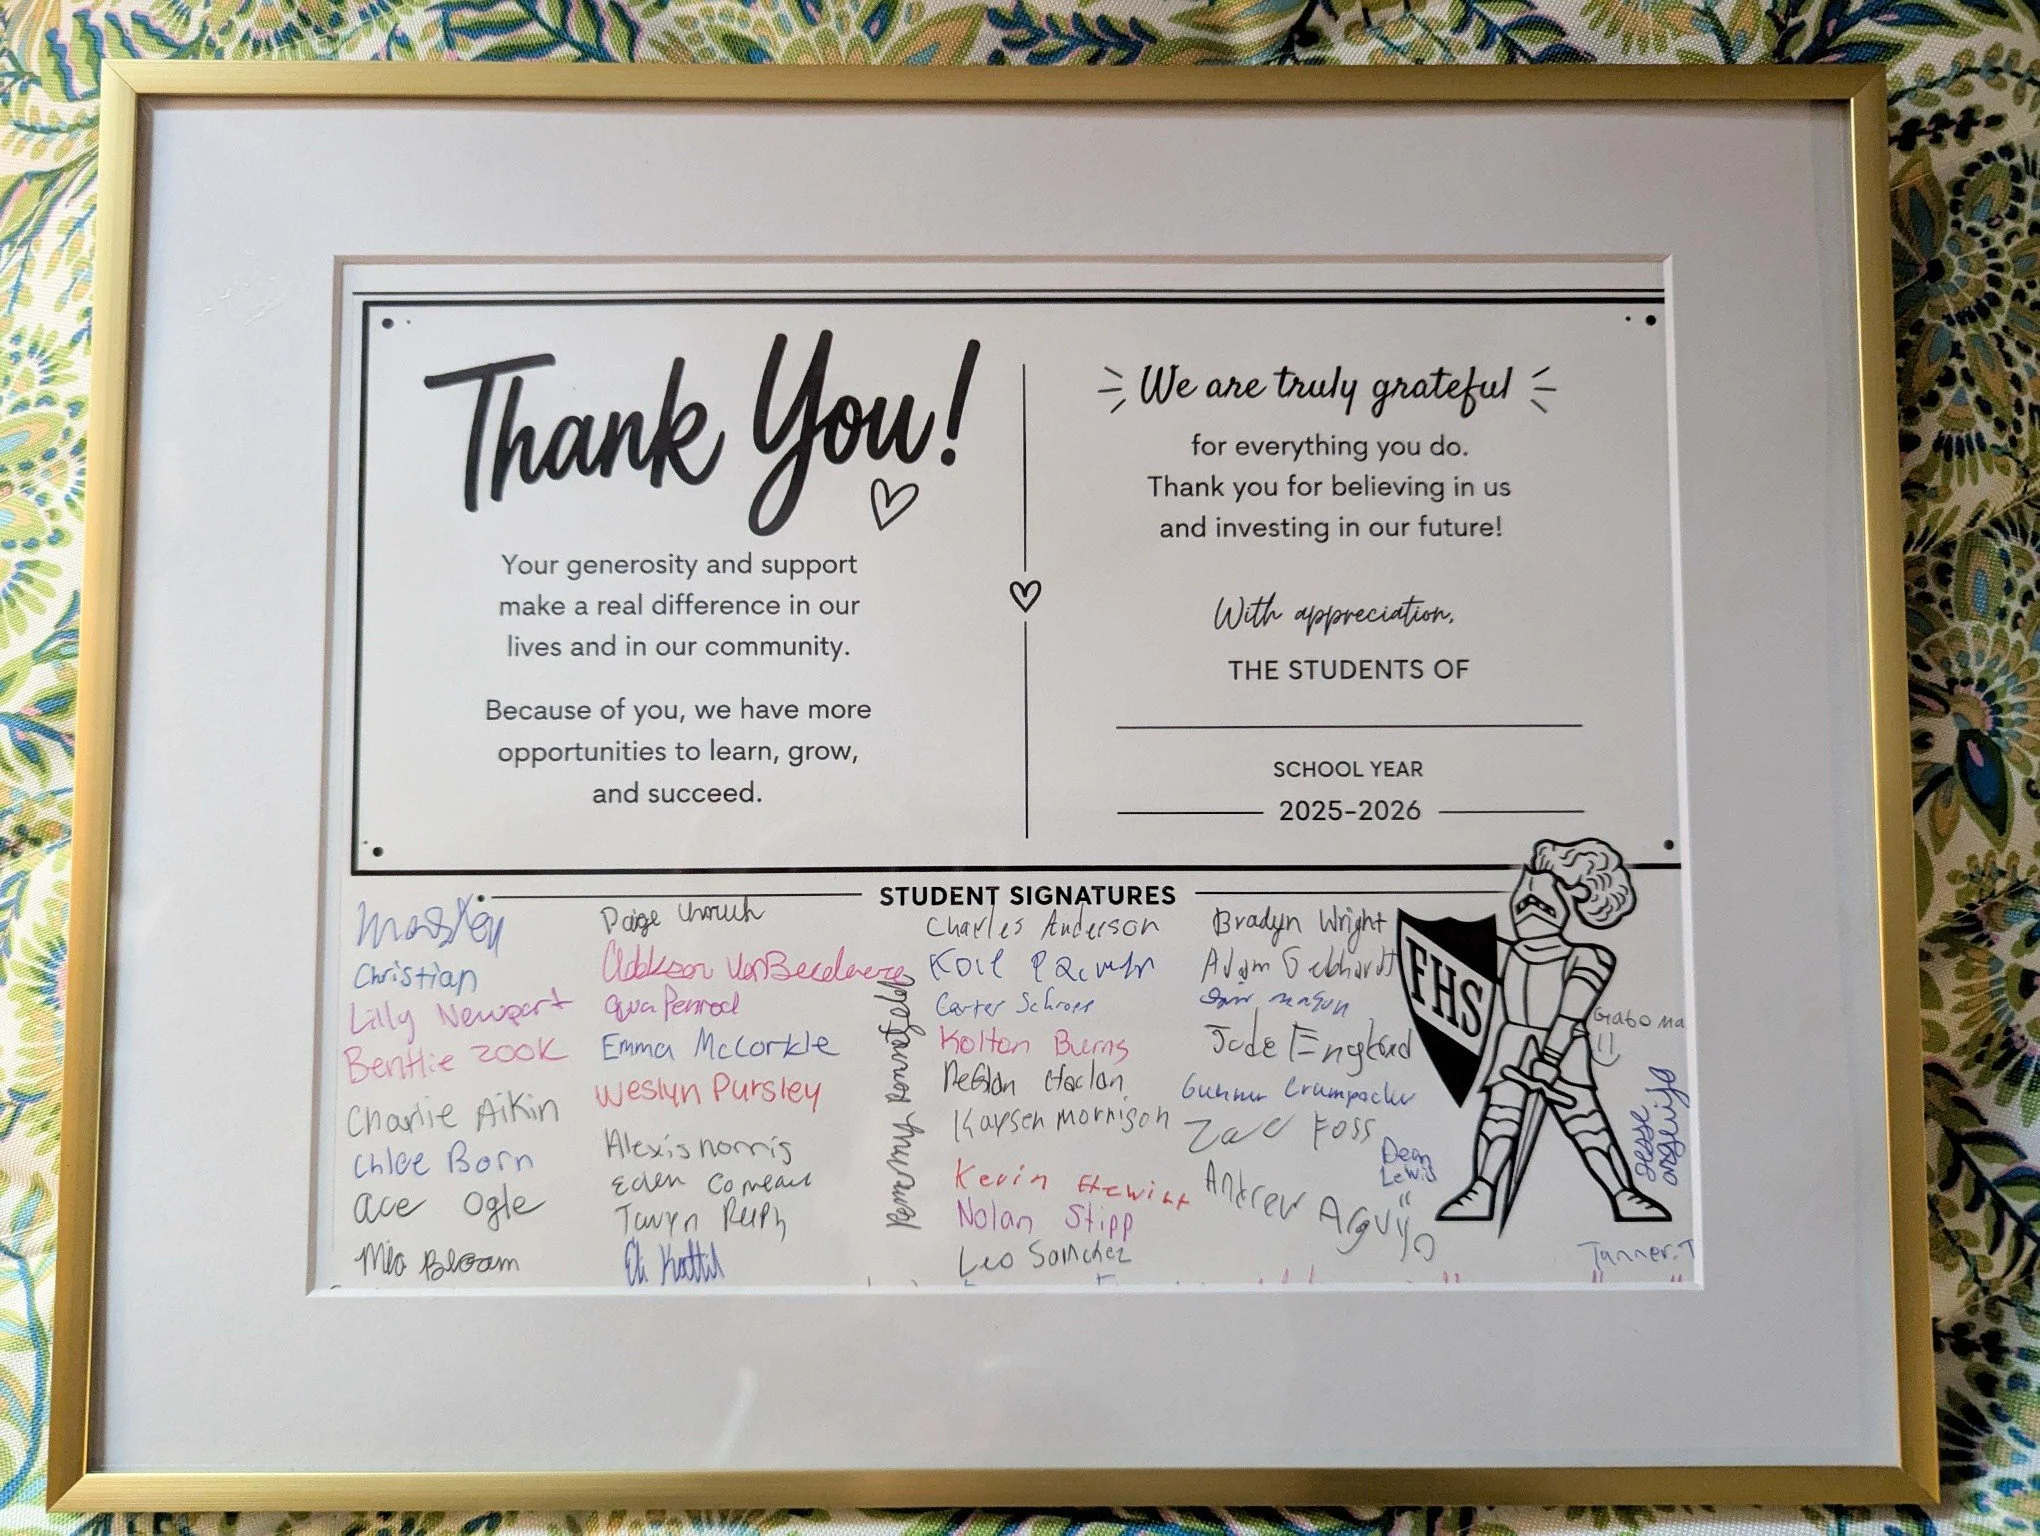 Thank You!
Your generosity and support
make a real difference in our
lives and in our community.
Because of you, we have more
opportunities to learn, grow,
and succeed.
We are truly grateful
for everything you do.
Thank you for believing in us
and investing in our future!
With appreciation,
THE STUDENTS OF
SCHOOL YEAR
2025-2026
STUDENT SIGNATURES
FHS
Christian
Lilly Newport
Benttie zook
Charlie Aikin
Chloe Born
Ace Ogle
Mia Bloom
Paige
Penrod
Emma McCorkle
Weslyn Pursley
Alexis norris
Eden Comeau
Tawyn
Eli
Charles Anderson
Carter
Kolton Burns
Kaysen morrison
Kevin
Nolan Stipp
Leo Sanchez
Bradyn Wright
Adam Gebhardt
Jude England
Gunnar Crumpacker
Zac Foss
Dean
Lewis
Andrew
Jesse
Tanner.T